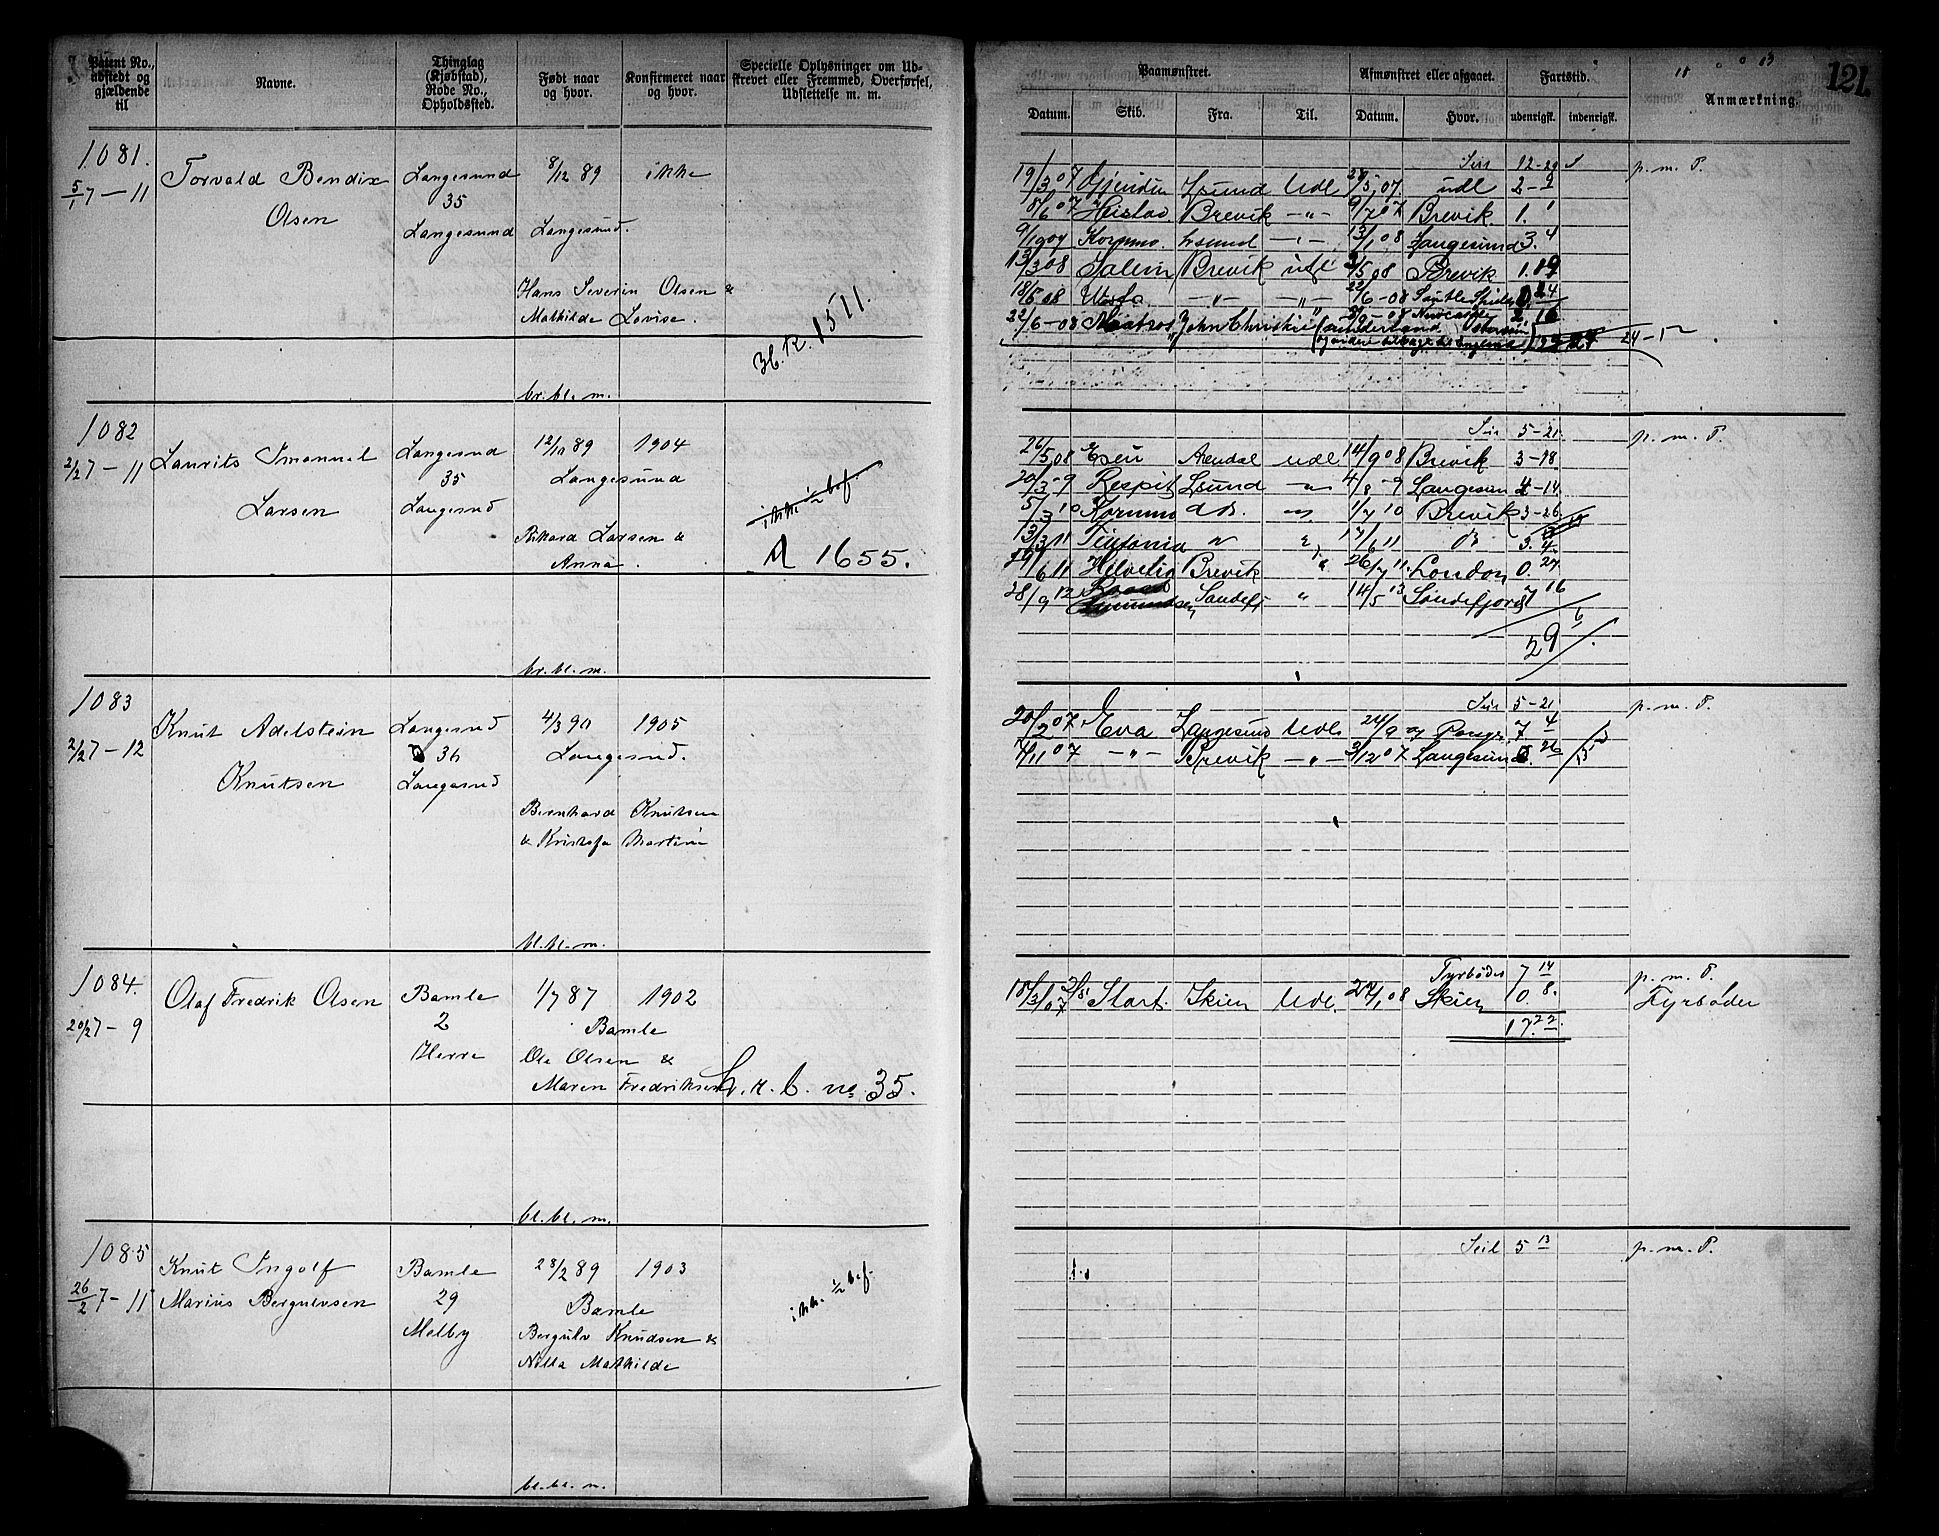 121.
Patent No., udstedt og gjældende til
Navne.
Thinglag (Kjøbstad), Rode No., Opholdssted.
Født naar og hvor.
Konfirmeret naar og hvor.
Specielle Oplysninger om Udskrevet eller Fremmed, Overførsel, Udslettelse m. m.
Paamønstret.
Afmønstret eller afgaaet.
Fartstid.
Anmærkning.
Datum. Skib. Fra. Til. Datum. Hvor. udenrigsk. indenrigsk.
1081.
5/1 7 – 11
Torvald Bendix
Olsen
Langesund
35
Langesund
8/12 89 ikke
Langesund.
Hans Severin Olsen &
Mathilde Lovise.
br. bl. m.
H. K. 1511.
12-29 p. m. P.
19/3 07 Gjendin Lsund Udl 5/07. udl 2-9
8/6 07 Heistad Brevik – " – 9/7 07 Brevik 1. 1
Kornmo Lsund – " – 13/1 08 Langesund 3. 4
13/3 08 Salem Brevik udl /5 08 Brevik
18/5 08 – " – – " – 22/6 - 08
22/6 - 08 Matros John Christie " Newcastle 2. 16
24 – 1
1082
2/2 7 – 11
Laurits Imanuel
Larsen
Langesund
35
Langesund
12/10 89 1904
Langesund
Rikard Larsen &
Anna.
br. bl. m.
ikke 1/2 bef.
A 1655.
5-21. p. m. P.
26/5 08 Arendal Udl 14/9 08 Brevik 3-18
20/3 - 9 Respit Lsund " 4/8 - 9 Langesun 4-14.
5/3 10 Kornmo do. " 1/7 10 Brevik 3-26.
13/3 11 " " 17/6 11 do 3. 4.
/6 11 Helvetig Brevik " 26/7 11. London 0. 27
28/9 12 Sandefj " 14/5 13 Sandefjord 7 16
29 6
1083
2/2 7 – 12
Knut Adelstein
Knutsen
Langesund
36
Langesund
4/3 90 1905
Langesund.
Bernhard Knutsen
& Kristofa Martine
bl. bl. m.
5-21 p. m. P.
20/2 07 Eva Langesund Udl. 24/9 07 7 4
/11 07 – " – Brevik – " – 3/12 07 Langesund 26
1084.
20/2 7 – 9
Olaf Fredrik Olsen
Bamle
2
Herre
1/7 87 1902
Bamle
Ole Olsen &
Maren Fredriksen
bl. bl. m.
no 35.
Fyrbøder 7 14 p. m. P.
18/3 07 Start. Skien Udl. 27/1 08 Skien 10. 8. Fyrbøder
17. 22.
1085
26/2 7 – 11
Knut Ingolf
Marius Bergulvsen
Bamle
29
Melby
28/2 89 1903
Bamle
Bergulv Knudsen &
Nilla Mathilde
bl. bl. m.
ikk. 1/2 bef.
Seil 5 13 p. m. P.